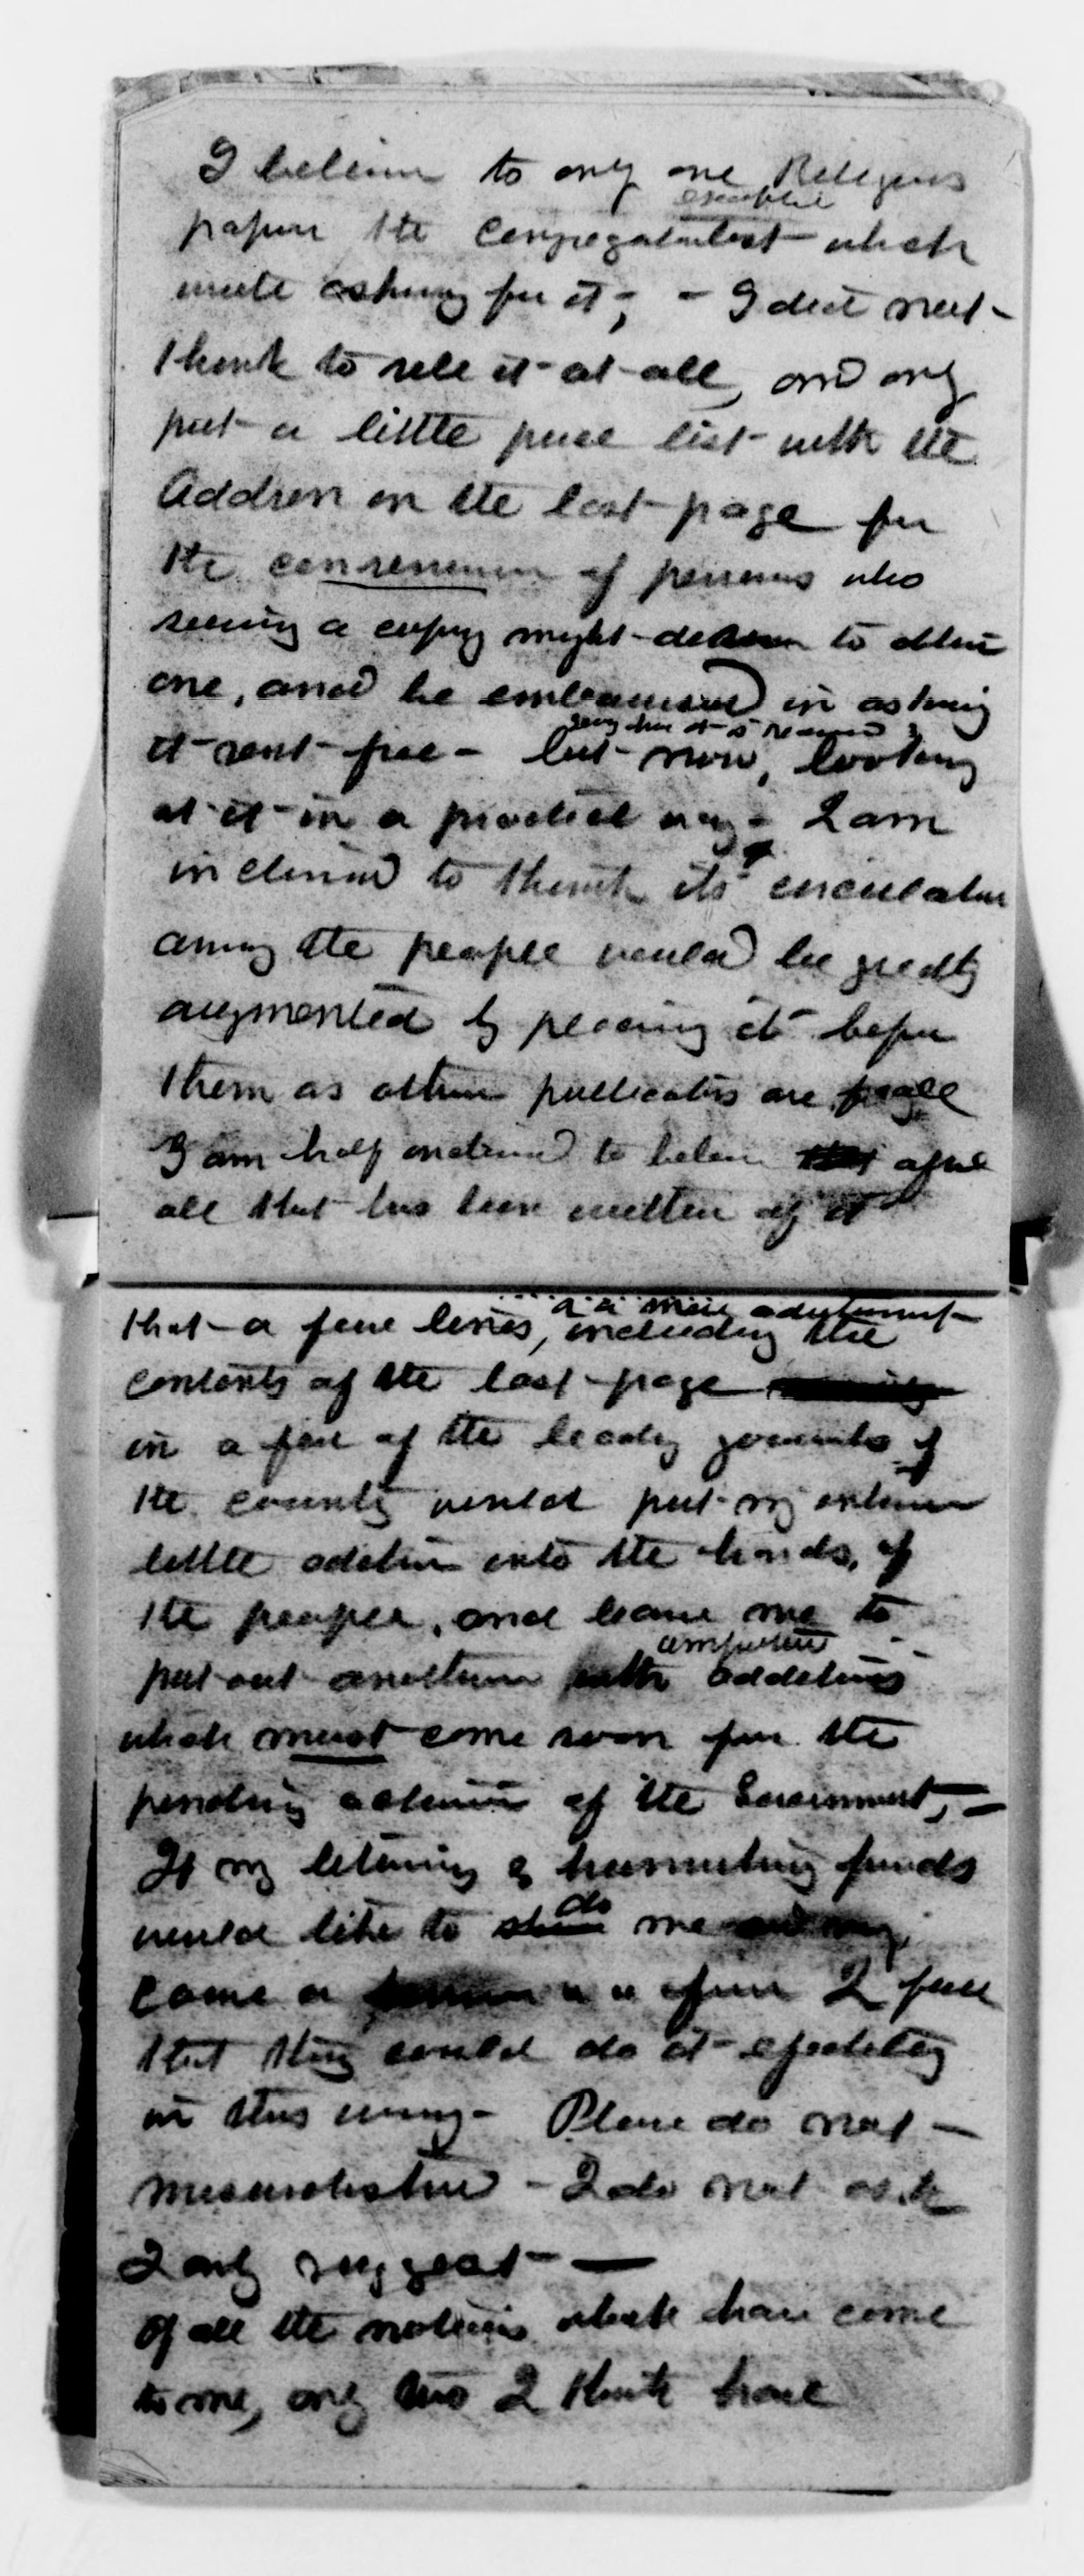 I believe to only one Religious
paper the Congregationalist which
wrote asking for it; - I did not
think to sell it at all, and only
put a little price list with the
Address on the last page for
the convenience of persons who
seeing a copy might desire to obtain
one, and be embarrassed in asking
it sent free - but now, looking
at it in a practical way - I am
inclined to think its circulation
among the people would be greatly
augmented by placing it before
them as other publications are
I am half inclined to believe after
all that has been written of it
as a mere advertisement
that a few lines, including the
contents of the last page
in a few of the leading journals of
the country would put my entire
little edition into the hands of
the people, and leave me to
put out another with additions
which must come soon for the
pending actions of the Government, -
If my literary & humanitarian friends
would like to do me
a I feel
that they could do it effectively
in this way - Please do not -
misunderstand - I do not ask
I only suggest -
Of all the notices which have come
to me, only two I think have